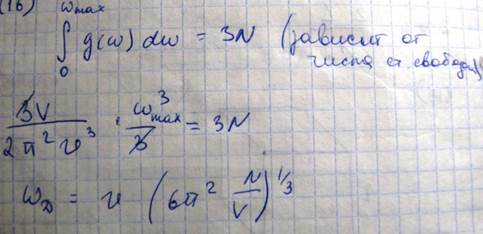 (16) ωmax
∫₀ g(ω) dω = 3N (зависит от
числа ст. свободы)
3V / 2π²v³ · ω³max / 3 = 3N
ω_D = v (6π² N/V)^1/3